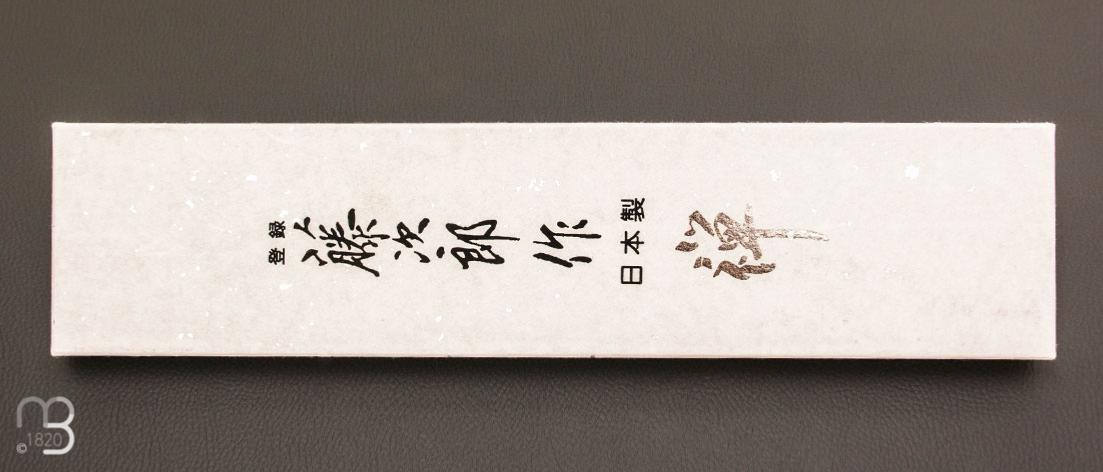 登録
藤次郎作
日本製
禅
©1820